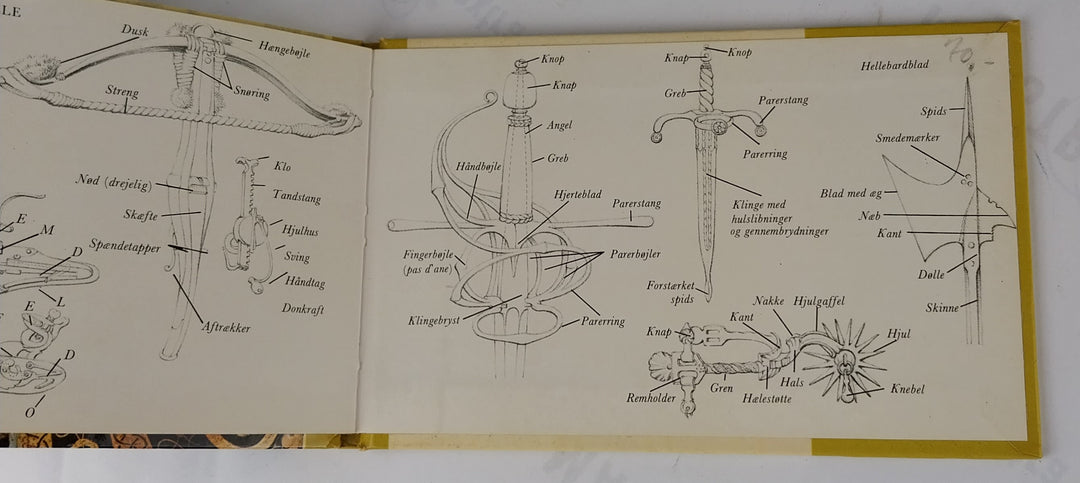 LE
Dusk
Hængebøjle
Streng
Snøring
Klo
Nød (drejelig)
Tandstang
Skæfte
E
M
Hjulhus
Spændetapper
Sving
D
Håndtag
L
Donkraft
E
Aftrækker
D
O
Knop
Knap
Angel
Greb
Håndbøjle
Hjerteblad
Parerstang
Fingerbøjle
(pas d'ane)
Parerbøjler
Klingebryst
Parerring
Knap
Knop
Greb
Parerstang
Parerring
Klinge med
hulslibninger
og gennembrydninger
Forstærket
spids
70,-
Hellebardblad
Spids
Smedemærker
Blad med æg
Næb
Kant
Dølle
Skinne
Nakke
Hjulgaffel
Kant
Knap
Hjul
Remholder
Gren
Hælestøtte
Hals
Knebel